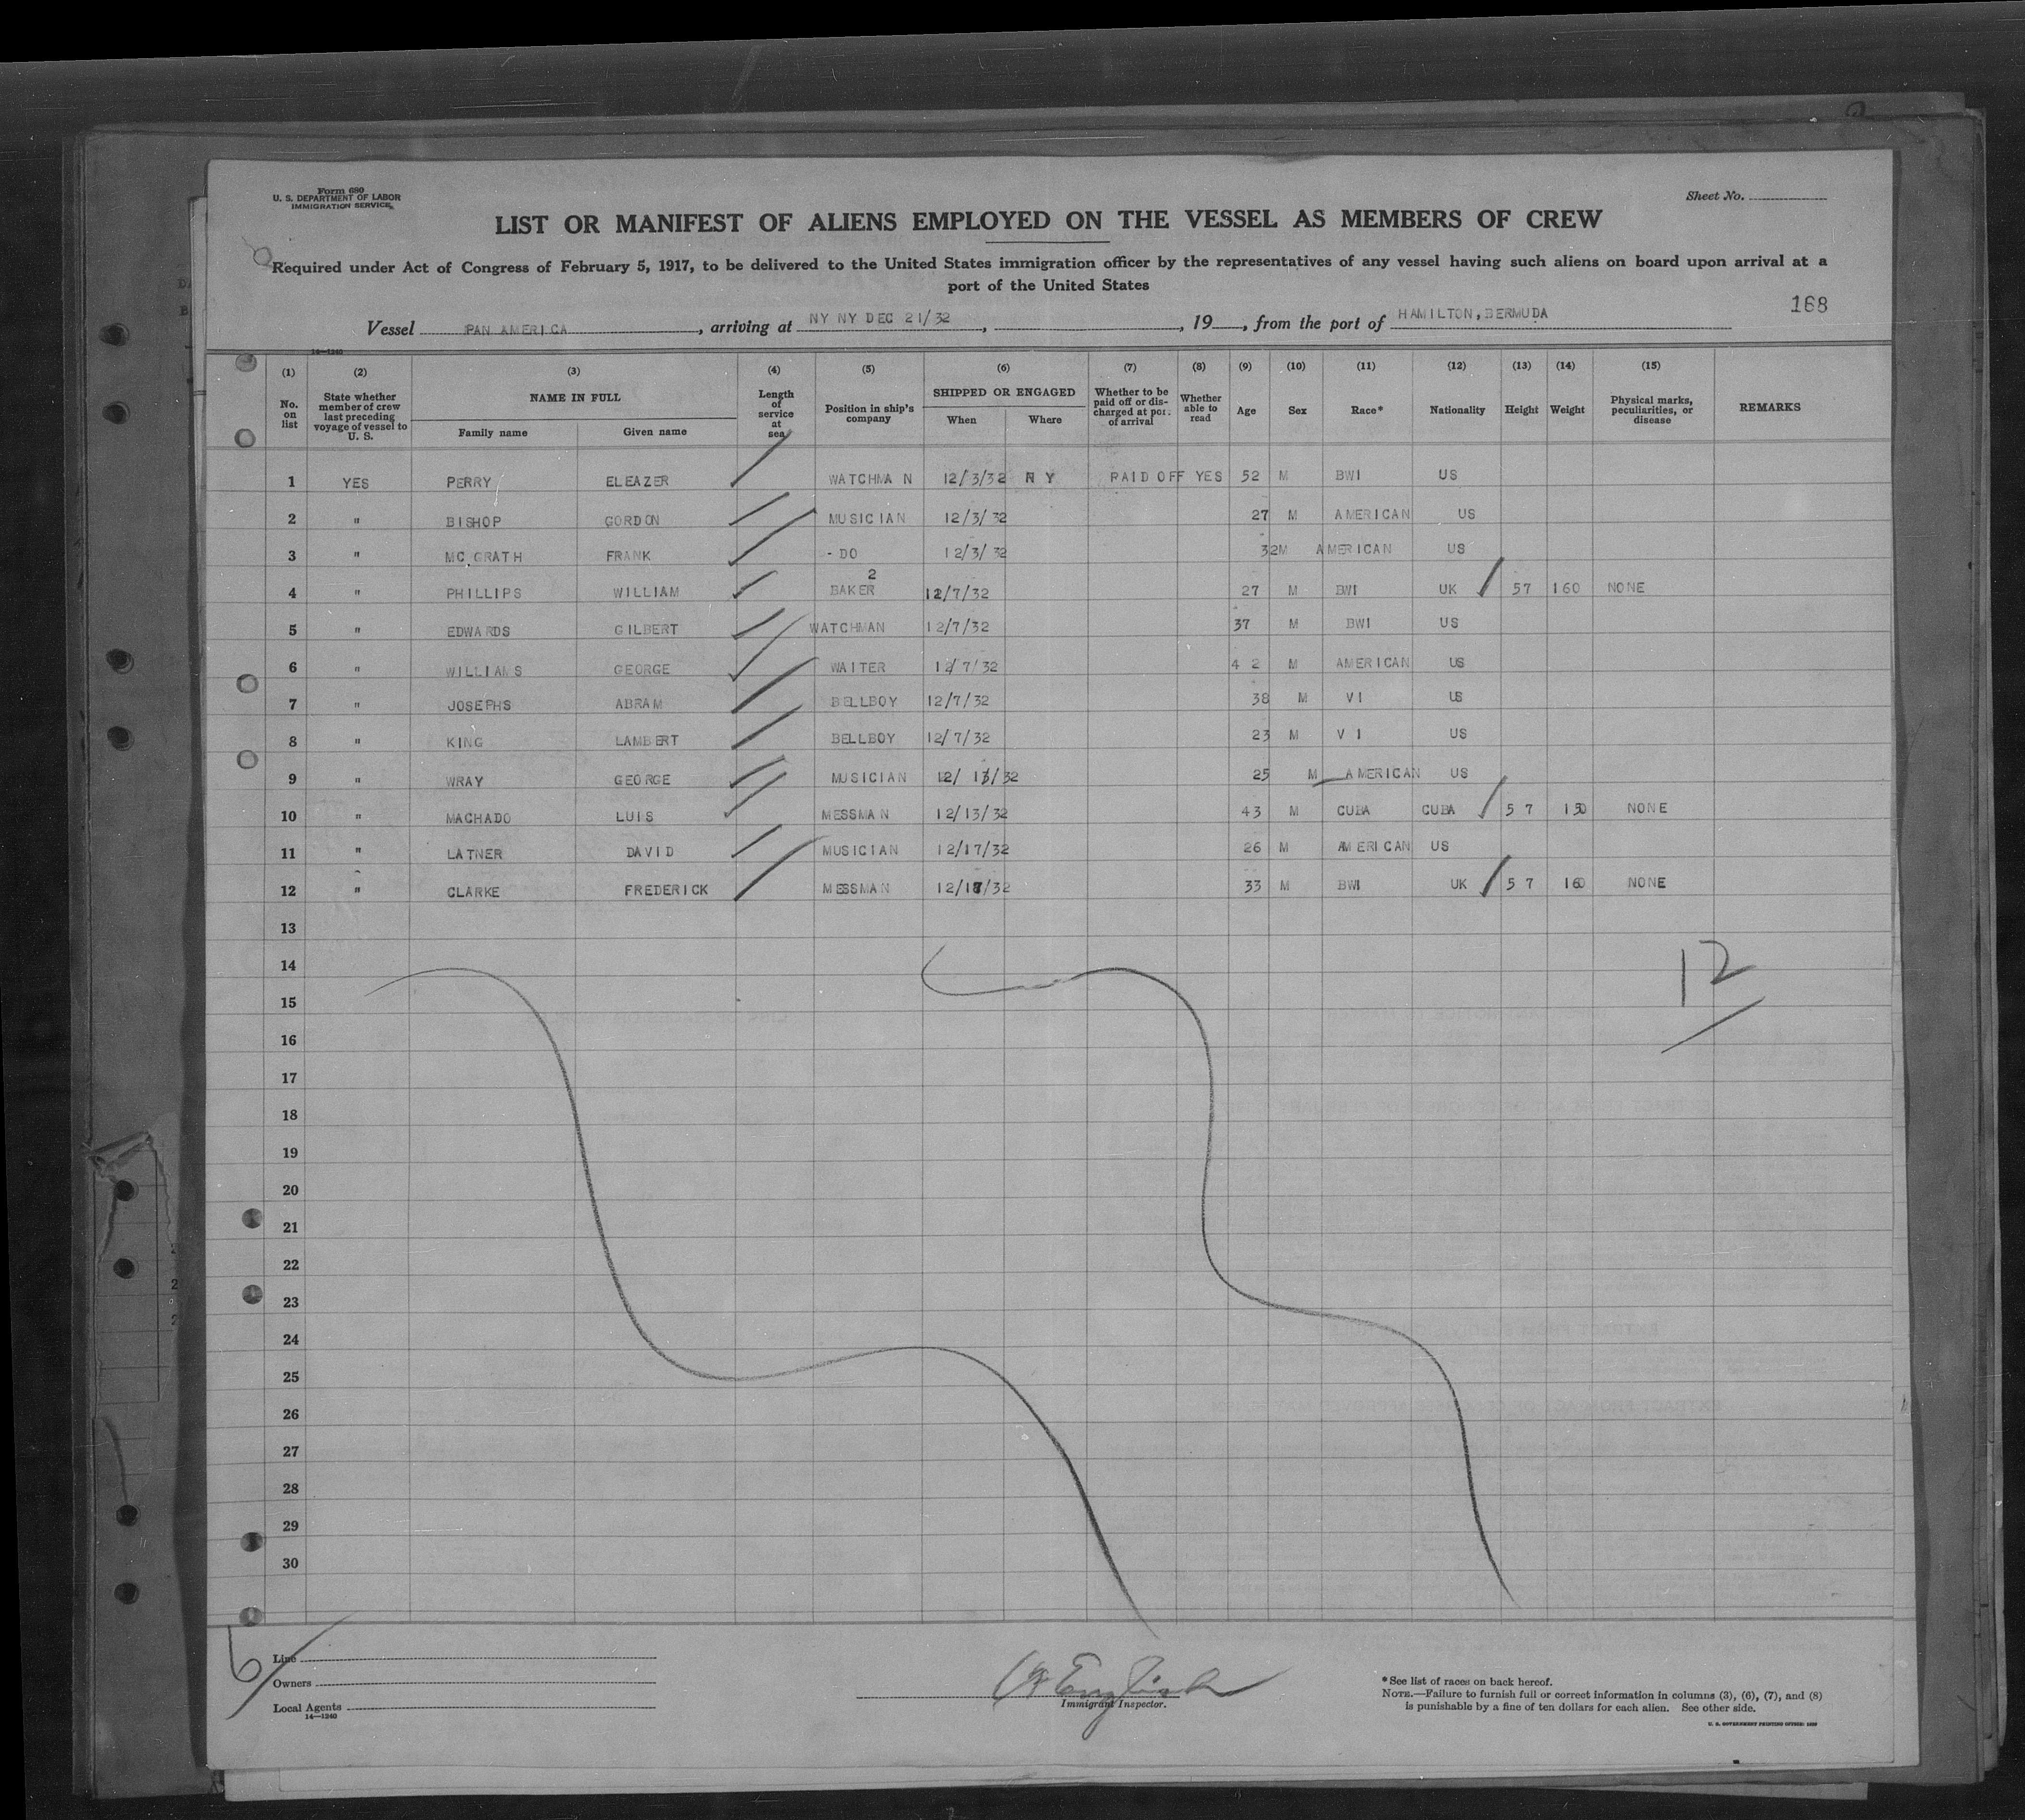 Form 680
U. S. DEPARTMENT OF LABOR
IMMIGRATION SERVICE
Sheet No.
LIST OR MANIFEST OF ALIENS EMPLOYED ON THE VESSEL AS MEMBERS OF CREW
Required under Act of Congress of February 5, 1917, to be delivered to the United States immigration officer by the representatives of any vessel having such aliens on board upon arrival at a
port of the United States
168
Vessel PAN AMERICA, arriving at NY NY DEC 21/32, , 19 , from the port of HAMILTON, BERMUDA
14—1240
(1) (2) (3) (4) (5) (6) (7) (8) (9) (10) (11) (12) (13) (14) (15)
No. on list State whether member of crew last preceding voyage of vessel to U. S. NAME IN FULL Family name Given name Length of service at sea Position in ship's company SHIPPED OR ENGAGED When Where Whether to be paid off or discharged at port of arrival Whether able to read Age Sex Race* Nationality Height Weight Physical marks, peculiarities, or disease REMARKS
1 YES PERRY ELEAZER WATCHMAN 12/3/32 N Y PAID OFF YES 52 M BWI US
2 " BISHOP GORDON MUSICIAN 12/3/32 27 M AMERICAN US
3 " MC.GRATH FRANK - DO 12/3/32 32 M AMERICAN US
4 " PHILLIPS WILLIAM 2 BAKER 12/7/32 27 M BWI UK 57 160 NONE
5 " EDWARDS GILBERT WATCHMAN 12/7/32 37 M BWI US
6 " WILLIAMS GEORGE WAITER 12/7/32 42 M AMERICAN US
7 " JOSEPHS ABRAM BELLBOY 12/7/32 38 M V I US
8 " KING LAMBERT BELLBOY 12/7/32 23 M V I US
9 " WRAY GEORGE MUSICIAN 12/13/32 25 M AMERICAN US
10 " MACHADO LUIS MESSMAN 12/13/32 43 M CUBA CUBA 57 150 NONE
11 " LATNER DAVID MUSICIAN 12/17/32 26 M AMERICAN US
12 " CLARKE FREDERICK MESSMAN 12/17/32 33 M BWI UK 57 160 NONE
13
14
12
15
16
17
18
19
20
21
22
23
24
25
26
27
28
29
30
6
Line
Owners
Local Agents
14—1240
English
Immigrant Inspector.
*See list of races on back hereof.
NOTE.—Failure to furnish full or correct information in columns (3), (6), (7), and (8)
is punishable by a fine of ten dollars for each alien. See other side.